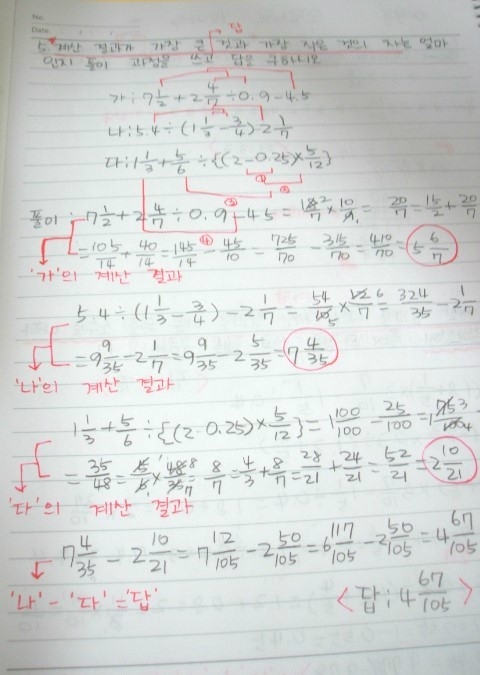 No.
Date.
답
5. 계산 결과가 가장 큰 것과 가장 작은 것의 차는 얼마
인지 풀이 과정을 쓰고 답을 구하시오
가: 7 1/2 + 2 4/7 ÷ 0.9 - 4.5
나: 5.4 ÷ (1 1/3 - 3/4) - 2 1/7
다: 1 1/3 + 5/6 ÷ {(2 - 0.25) × 5/12}
① ② ③ ④
풀이: 7 1/2 + 2 4/7 ÷ 0.9 - 4.5 = 18 2/7 × 10/9 1 = 20/7 = 15/2 + 20/7
= 105/14 + 40/14 = 145/14 - 45/10 = 725/70 - 315/70 = 410/70 = 5 6/7
'가'의 계산 결과
5.4 ÷ (1 1/3 - 3/4) - 2 1/7 = 54/10 5 × 12 6/7 = 324/35 - 2 1/7
= 9 9/35 - 2 1/7 = 9 9/35 - 2 5/35 = 7 4/35
'나'의 계산 결과
1 1/3 + 5/6 ÷ {(2 - 0.25) × 5/12} = 1 100/100 - 25/100 = 1 75 3/100 4
= 35/48 = 5/6 × 48 8/35 7 = 8/7 = 4/3 + 8/7 = 28/21 + 24/21 = 52/21 = 2 10/21
'다'의 계산 결과
7 4/35 - 2 10/21 = 7 12/105 - 2 50/105 = 6 117/105 - 2 50/105 = 4 67/105
'나' - '다' = '답'
<답: 4 67/105>